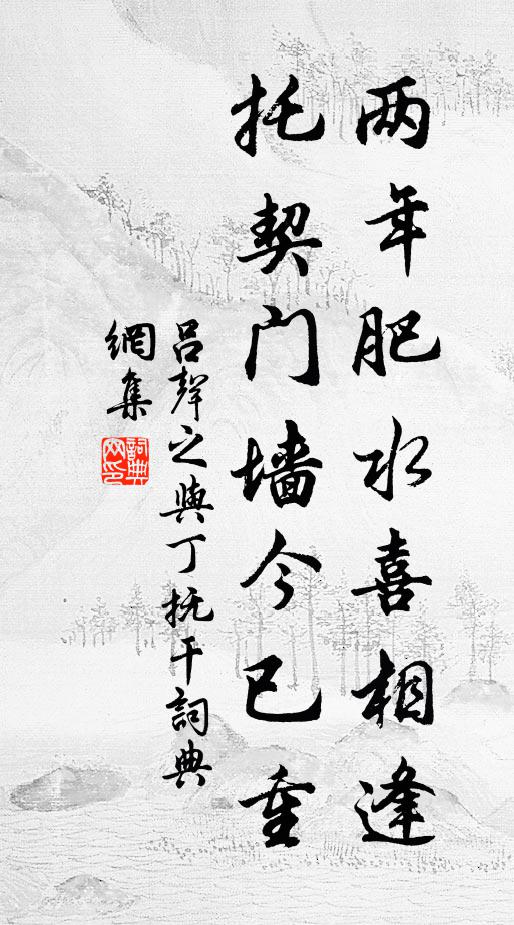 两年肥水喜相逢
托契门墙今已重
吕聲之與丁抚干詞典
網集
詞典网印